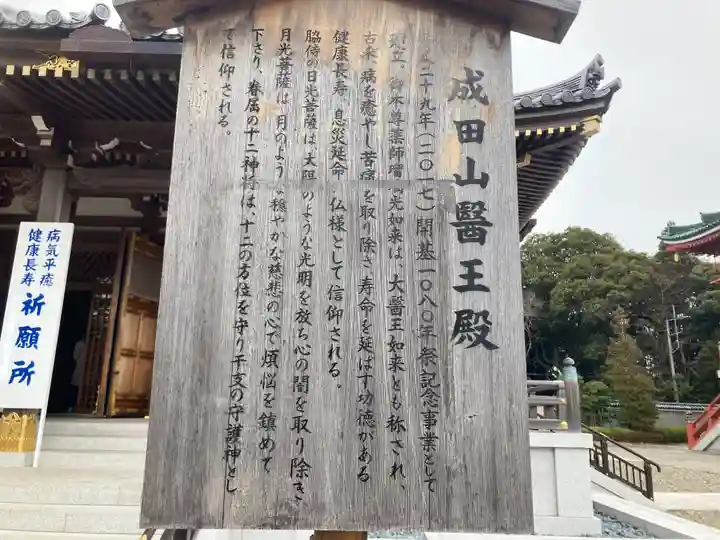 成田山醫王殿
平成二十九年（二〇一七）開基一〇八〇年祭記念事業として
建立、御本尊薬師瑠璃光如来は、大醫王如来とも称され、
古来、病を癒やし苦痛を取り除き、寿命を延ばす功徳がある
健康長寿、息災延命の仏様として信仰される。
脇侍の日光菩薩は太陽のような光明を放ち心の闇を取り除き
月光菩薩は月のような穏やかな慈悲の心で煩悩を鎮めて
下さり、眷属の十二神将は、十二の方位を守り干支の守護神とし
て信仰される。
病気平癒
健康長寿
祈願所